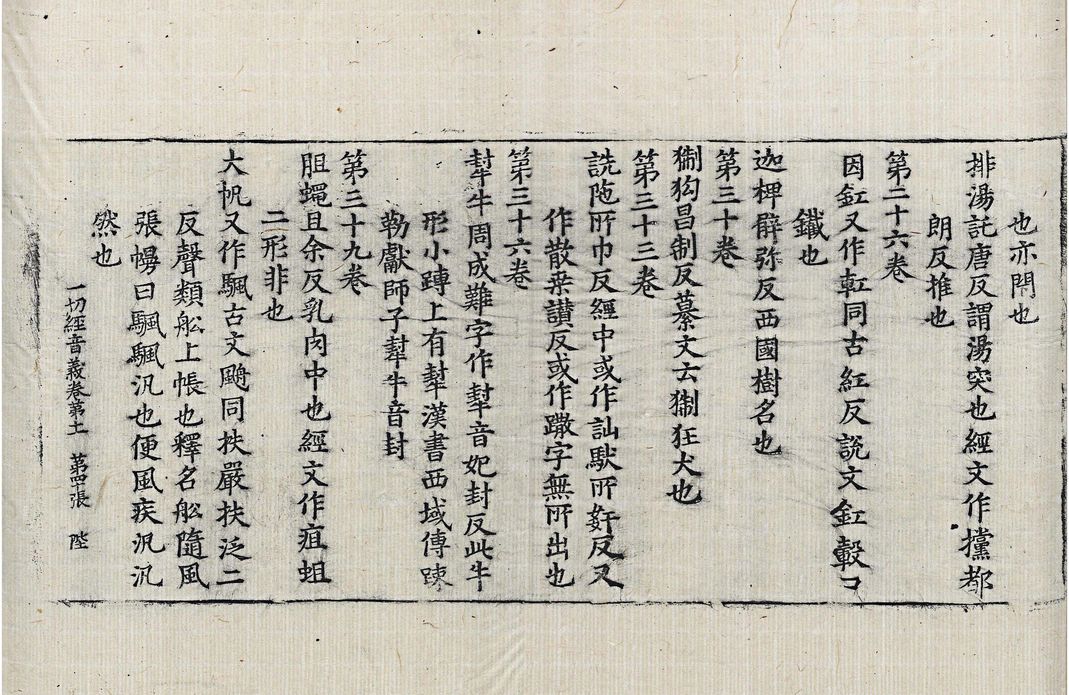 也亦閇也
排湯託唐反謂湯突也經文作攩都
朗反推也
第二十六卷
因釭又作軖同古紅反說文釭轂口
鐵也
迦椑辟弥反西國樹名也
第三十卷
猘狗昌制反纂文云猘狂犬也
第三十三卷
詵陁所巾反經中或作訕馱所姧反又
作散桒讃反或作躐字無所出也
第三十六卷
犎牛周成難字作犎音妃封反此牛
形小髆上有犎漢書西域傳踈
勒獻師子犎牛音封
第三十九卷
胆蠅且余反乳肉中也經文作疽蛆
二形非也
大帆又作颿古文颿同扶嚴扶泛二
反聲類舩上帳也釋名舩隨風
張幔曰颿颿汎也便風疾汎汎
然也
一切經音義卷第十一 第四張 陛